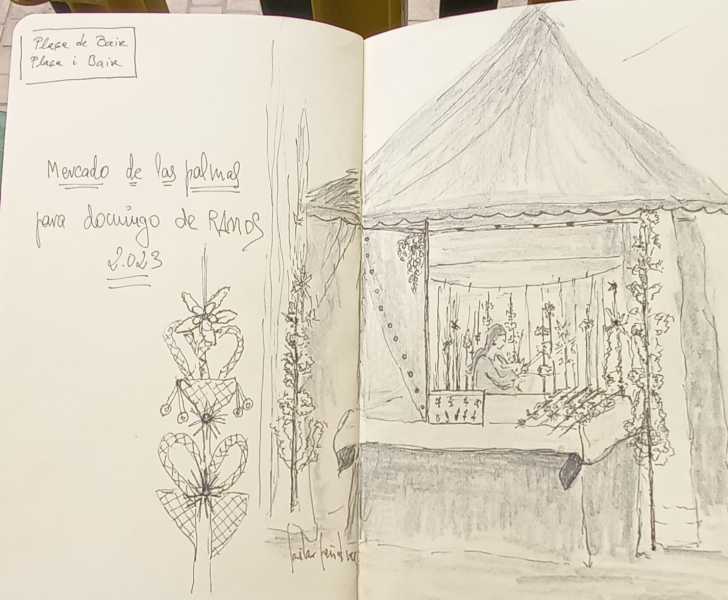 Plasa de Baix
Plasa i Baix
Mercado de las palmas
para domingo de RAMOS
2.023